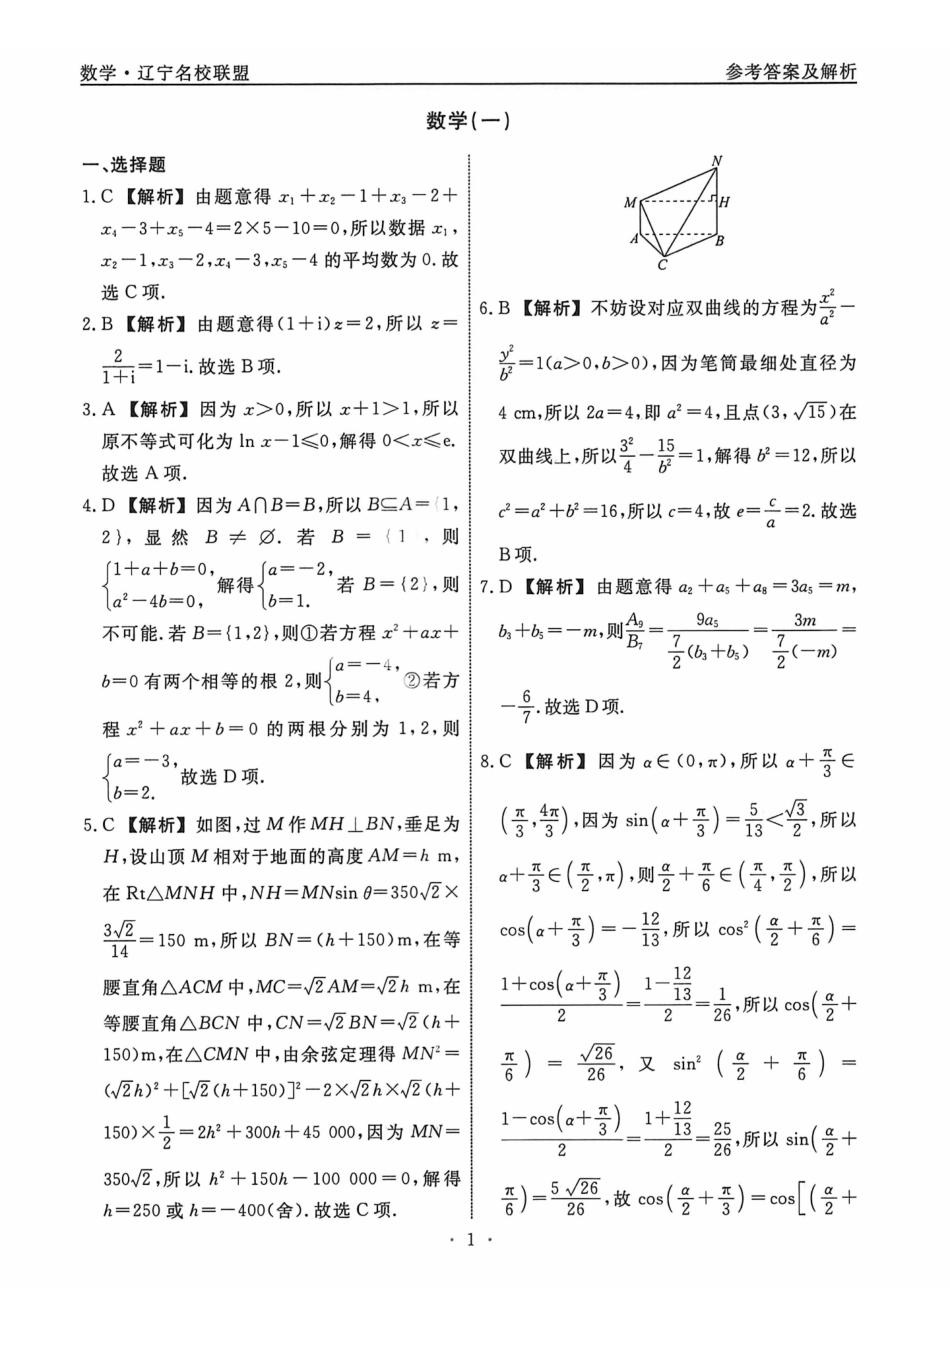 数学·辽宁名校联盟
参考答案及解析
数学(一)
一、选择题
1. C 【解析】由题意得 x₁+x₂-1+x₃-2+
x₄-3+x₅-4=2×5-10=0,所以数据 x₁,
x₂-1,x₃-2,x₄-3,x₅-4 的平均数为 0. 故
选 C 项.
2. B 【解析】由题意得(1+i)z=2,所以 z=
2/(1+i)=1-i. 故选 B 项.
3. A 【解析】因为 x>0,所以 x+1>1,所以
原不等式可化为 ln x-1≤0,解得 0<x≤e.
故选 A 项.
4. D 【解析】因为 A∩B=B,所以 B⊆A={1,
2},显然 B≠∅. 若 B={1 ,则
{1+a+b=0, a²-4b=0, 解得{a=-2, b=1. 若 B={2},则
不可能. 若 B={1,2},则①若方程 x²+ax+
b=0 有两个相等的根 2,则{a=-4, b=4, ②若方
程 x²+ax+b=0 的两根分别为 1,2,则
{a=-3, b=2. 故选 D 项.
5. C 【解析】如图,过 M 作 MH⊥BN,垂足为
H,设山顶 M 相对于地面的高度 AM=h m,
在 Rt△MNH 中,NH=MNsin θ=350√2×
3√2/14=150 m,所以 BN=(h+150)m,在等
腰直角△ACM 中,MC=√2AM=√2h m,在
等腰直角△BCN 中,CN=√2BN=√2(h+
150)m,在△CMN 中,由余弦定理得 MN²=
(√2h)²+[√2(h+150)]²-2×√2h×√2(h+
150)×1/2=2h²+300h+45 000,因为 MN=
350√2,所以 h²+150h-100 000=0,解得
h=250 或 h=-400(舍). 故选 C 项.
N
M
H
A
B
C
6. B 【解析】不妨设对应双曲线的方程为x²/a²-
y²/b²=1(a>0,b>0),因为笔筒最细处直径为
4 cm,所以 2a=4,即 a²=4,且点(3,√15)在
双曲线上,所以3²/4-15/b²=1,解得 b²=12,所以
c²=a²+b²=16,所以 c=4,故 e=c/a=2. 故选
B 项.
7. D 【解析】由题意得 a₂+a₅+a₈=3a₅=m,
b₃+b₅=-m,则A₉/B₇=9a₅/(7/2(b₃+b₅))=3m/(7/2(-m))=
-6/7. 故选 D 项.
8. C 【解析】因为 α∈(0,π),所以 α+π/3∈
(π/3,4π/3),因为 sin(α+π/3)=5/13<√3/2,所以
α+π/3∈(π/2,π),则α/2+π/6∈(π/4,π/2),所以
cos(α+π/3)=-12/13,所以 cos²(α/2+π/6)=
(1+cos(α+π/3))/2=(1-12/13)/2=1/26,所以 cos(α/2+
π/6)=√26/26,又 sin²(α/2+π/6)=
(1-cos(α+π/3))/2=(1+12/13)/2=25/26,所以 sin(α/2+
π/6)=5√26/26,故 cos(α/2+π/3)=cos[(α/2+
· 1 ·